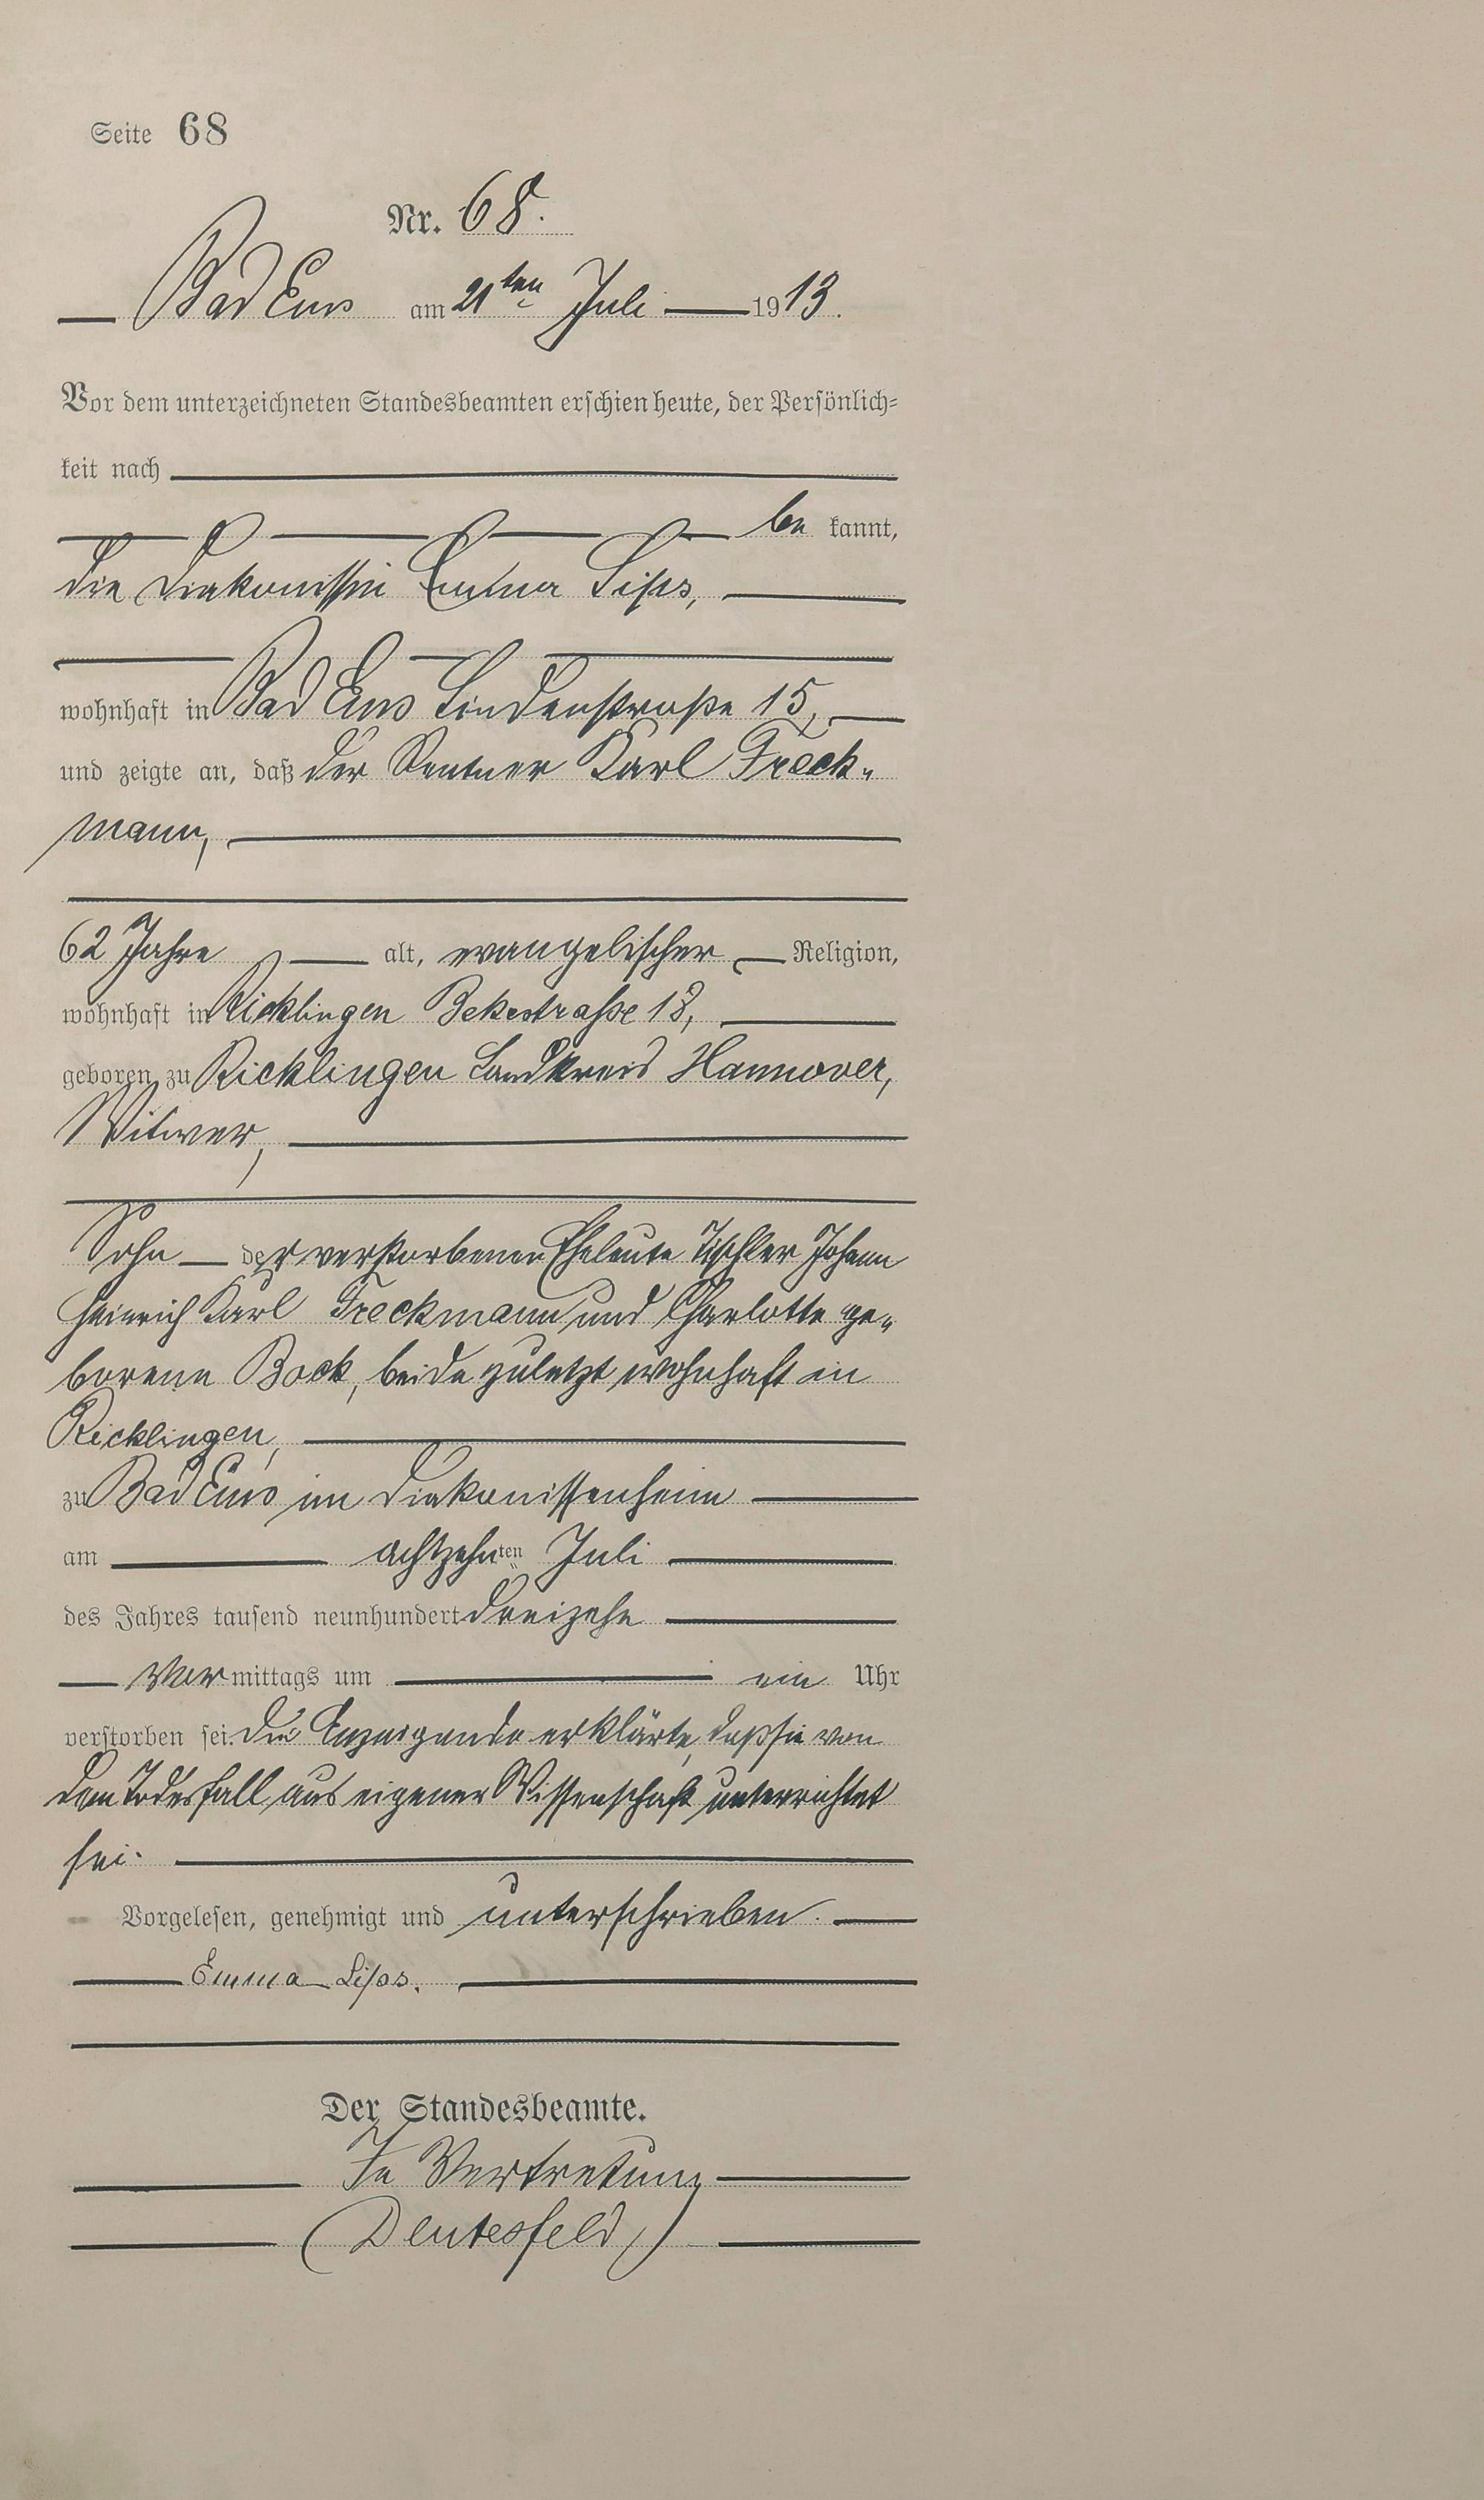 Seite 68
Nr. 68.
Bad Ems am 21ten Juli 1913.
Vor dem unterzeichneten Standesbeamten erschien heute, der Persönlich-
keit nach
be kannt,
die Diakonissin Emma Lips,
wohnhaft in Bad Ems Lindenstraße 15,
und zeigte an, daß der Rentner Karl Freck-
mann,
62 Jahre alt, evangelischer Religion,
wohnhaft in Ricklingen Bekestraße 18,
geboren zu Ricklingen Landkreis Hannover,
Witwer,
Sohn der verstorbenen Eheleute Tischler Johann
Heinrich Karl Freckmann und Charlotte ge-
borene Bock, beide zuletzt wohnhaft in
Ricklingen,
zu Bad Ems im Diakonissenheim
am achtzehnten Juli
des Jahres tausend neunhundert dreizehn
Vormittags um ein Uhr
verstorben sei. Die Anzeigende erklärte, daß sie von
dem Todesfall aus eigener Wissenschaft unterrichtet
sei.
Vorgelesen, genehmigt und unterschrieben.
Emma Lips.
Der Standesbeamte.
In Vertretung
(Deutesfeld)